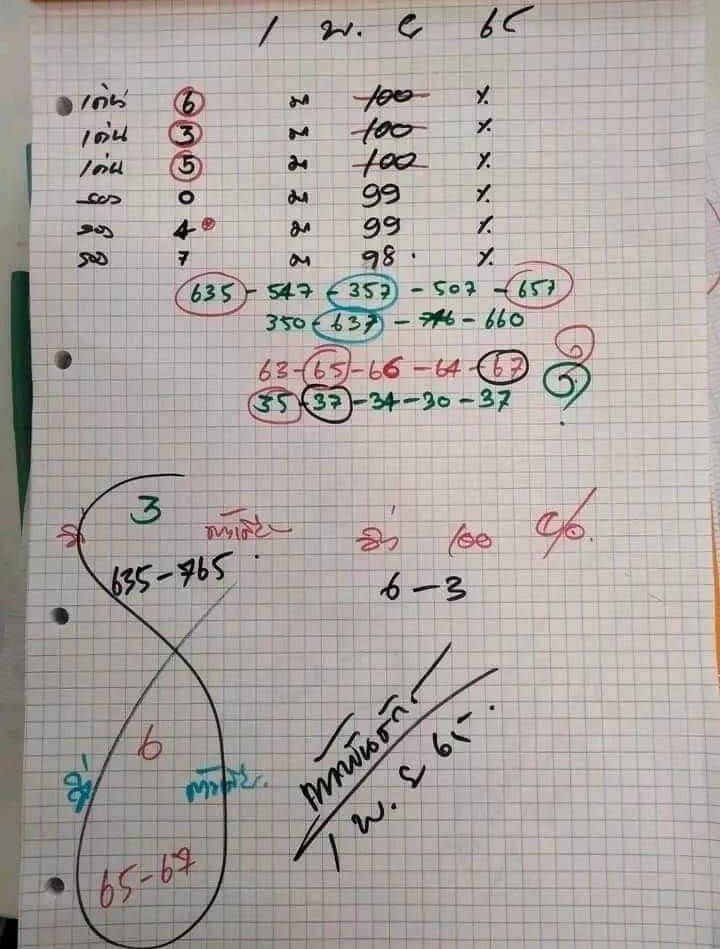 1 พ. ย 65
เด่น 6 ม 100 %
เด่น 3 ม 100 %
เด่น 5 ม 100 %
รอง 0 ม 99 %
รอง 4 ม 99 %
รอง 7 ม 98 %
635 - 547 - 357 - 507 - 657
350 - 637 - 746 - 660
63 - 65 - 66 - 64 - 67
35 - 37 - 34 - 30 - 37
3
635 - 765
100 %
6 - 3
6
65 - 67
1 พ. ย 65